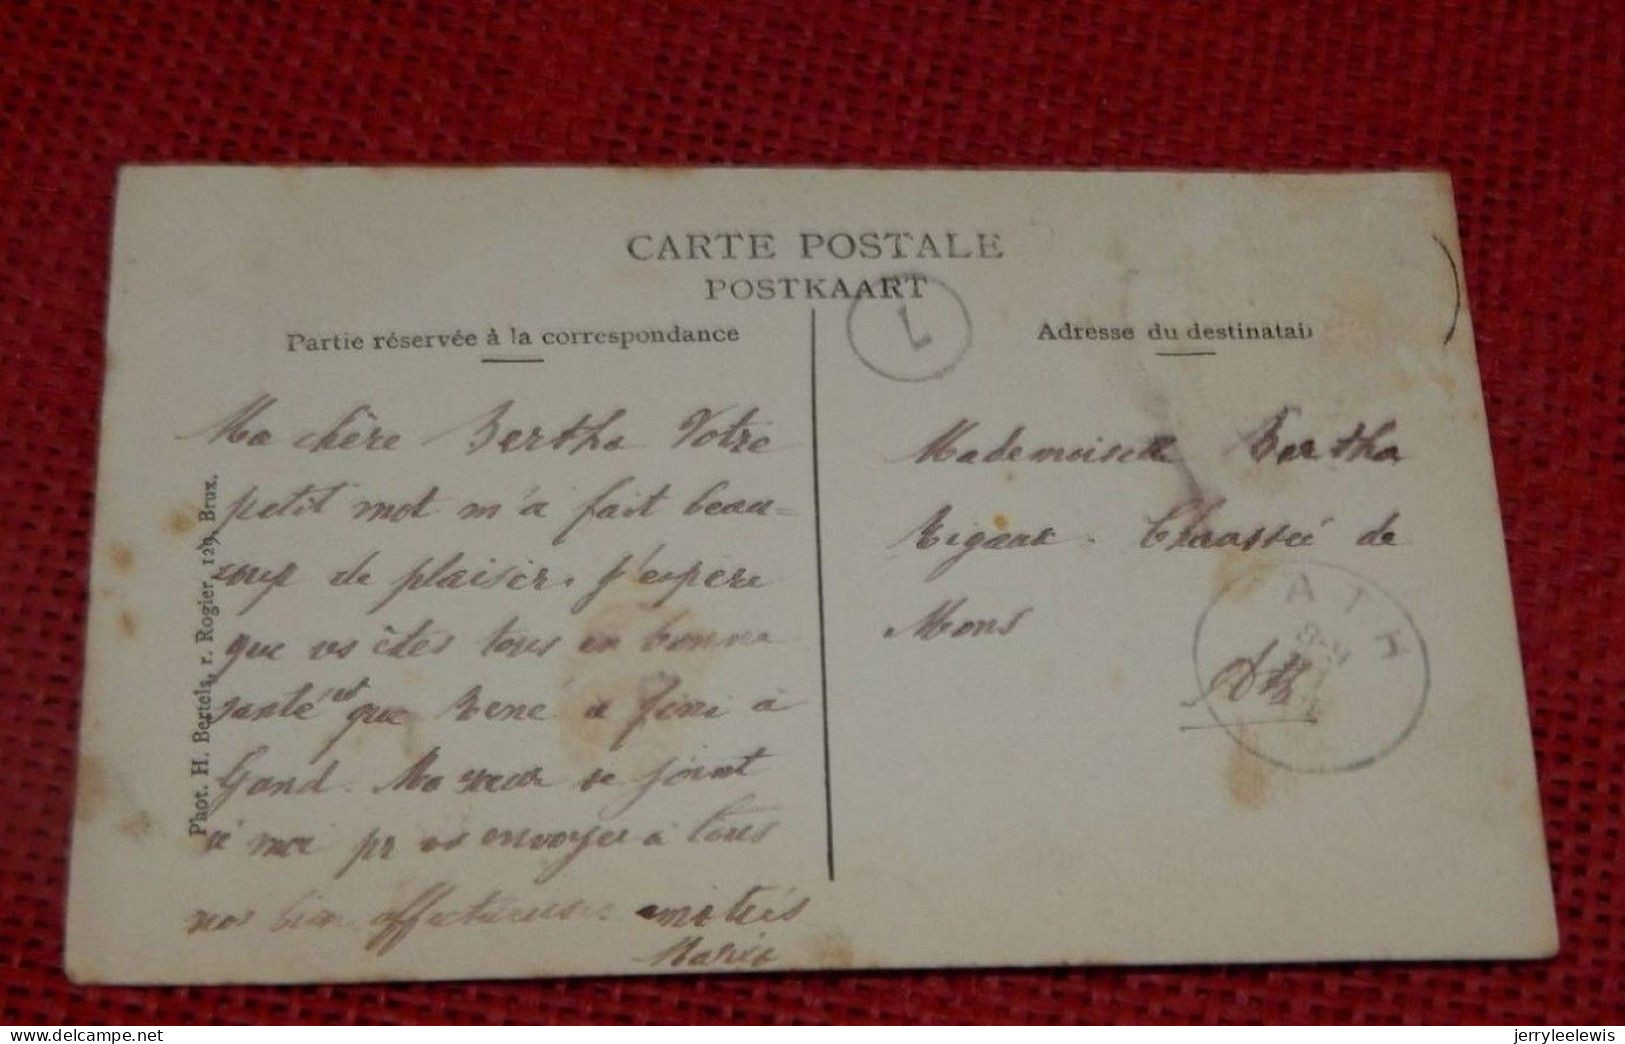 CARTE POSTALE
POSTKAART
Partie réservée à la correspondance
Ma chère Bertha Votre
petit mot m'a fait beau=
coup de plaisir. J'espère
que vs êtes tous en bonne
santé et que René a fini à
Gand. Ma se joint
à moi pr vs envoyer à tous
nos bien affectueuses amitiés
Maria
Phot. H. Bertels, r. Rogier, 129, Brux.
1
Adresse du destinatai
Mademoiselle Bertha
Rigaux. Chaussée de
Mons
Ath
ATH
jerryleelewis